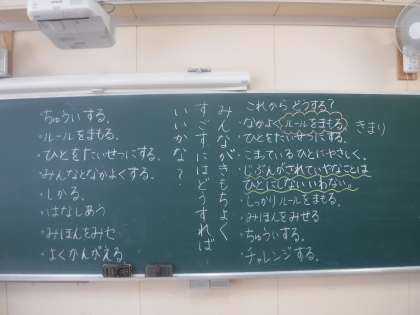 これから どうする?
・なかよくルールをまもる。 きまり
・ひとをたいせつにする。
・こまっているひとにやさしく。
・じぶんがされていやなことは
ひとにしない いわない。
・しっかりルールをまもる。
・みほんをみせる
・ちゅういする。
・チャレンジする。
みんながきもちよく
すごすにはどうすれば
いいかな?
・ちゅういする。
・ルールをまもる。
・ひとをたいせつにする。
・みんなとなかよくする。
・しかる。
・はなしあう
・みほんをみせ
・よくかんがえる